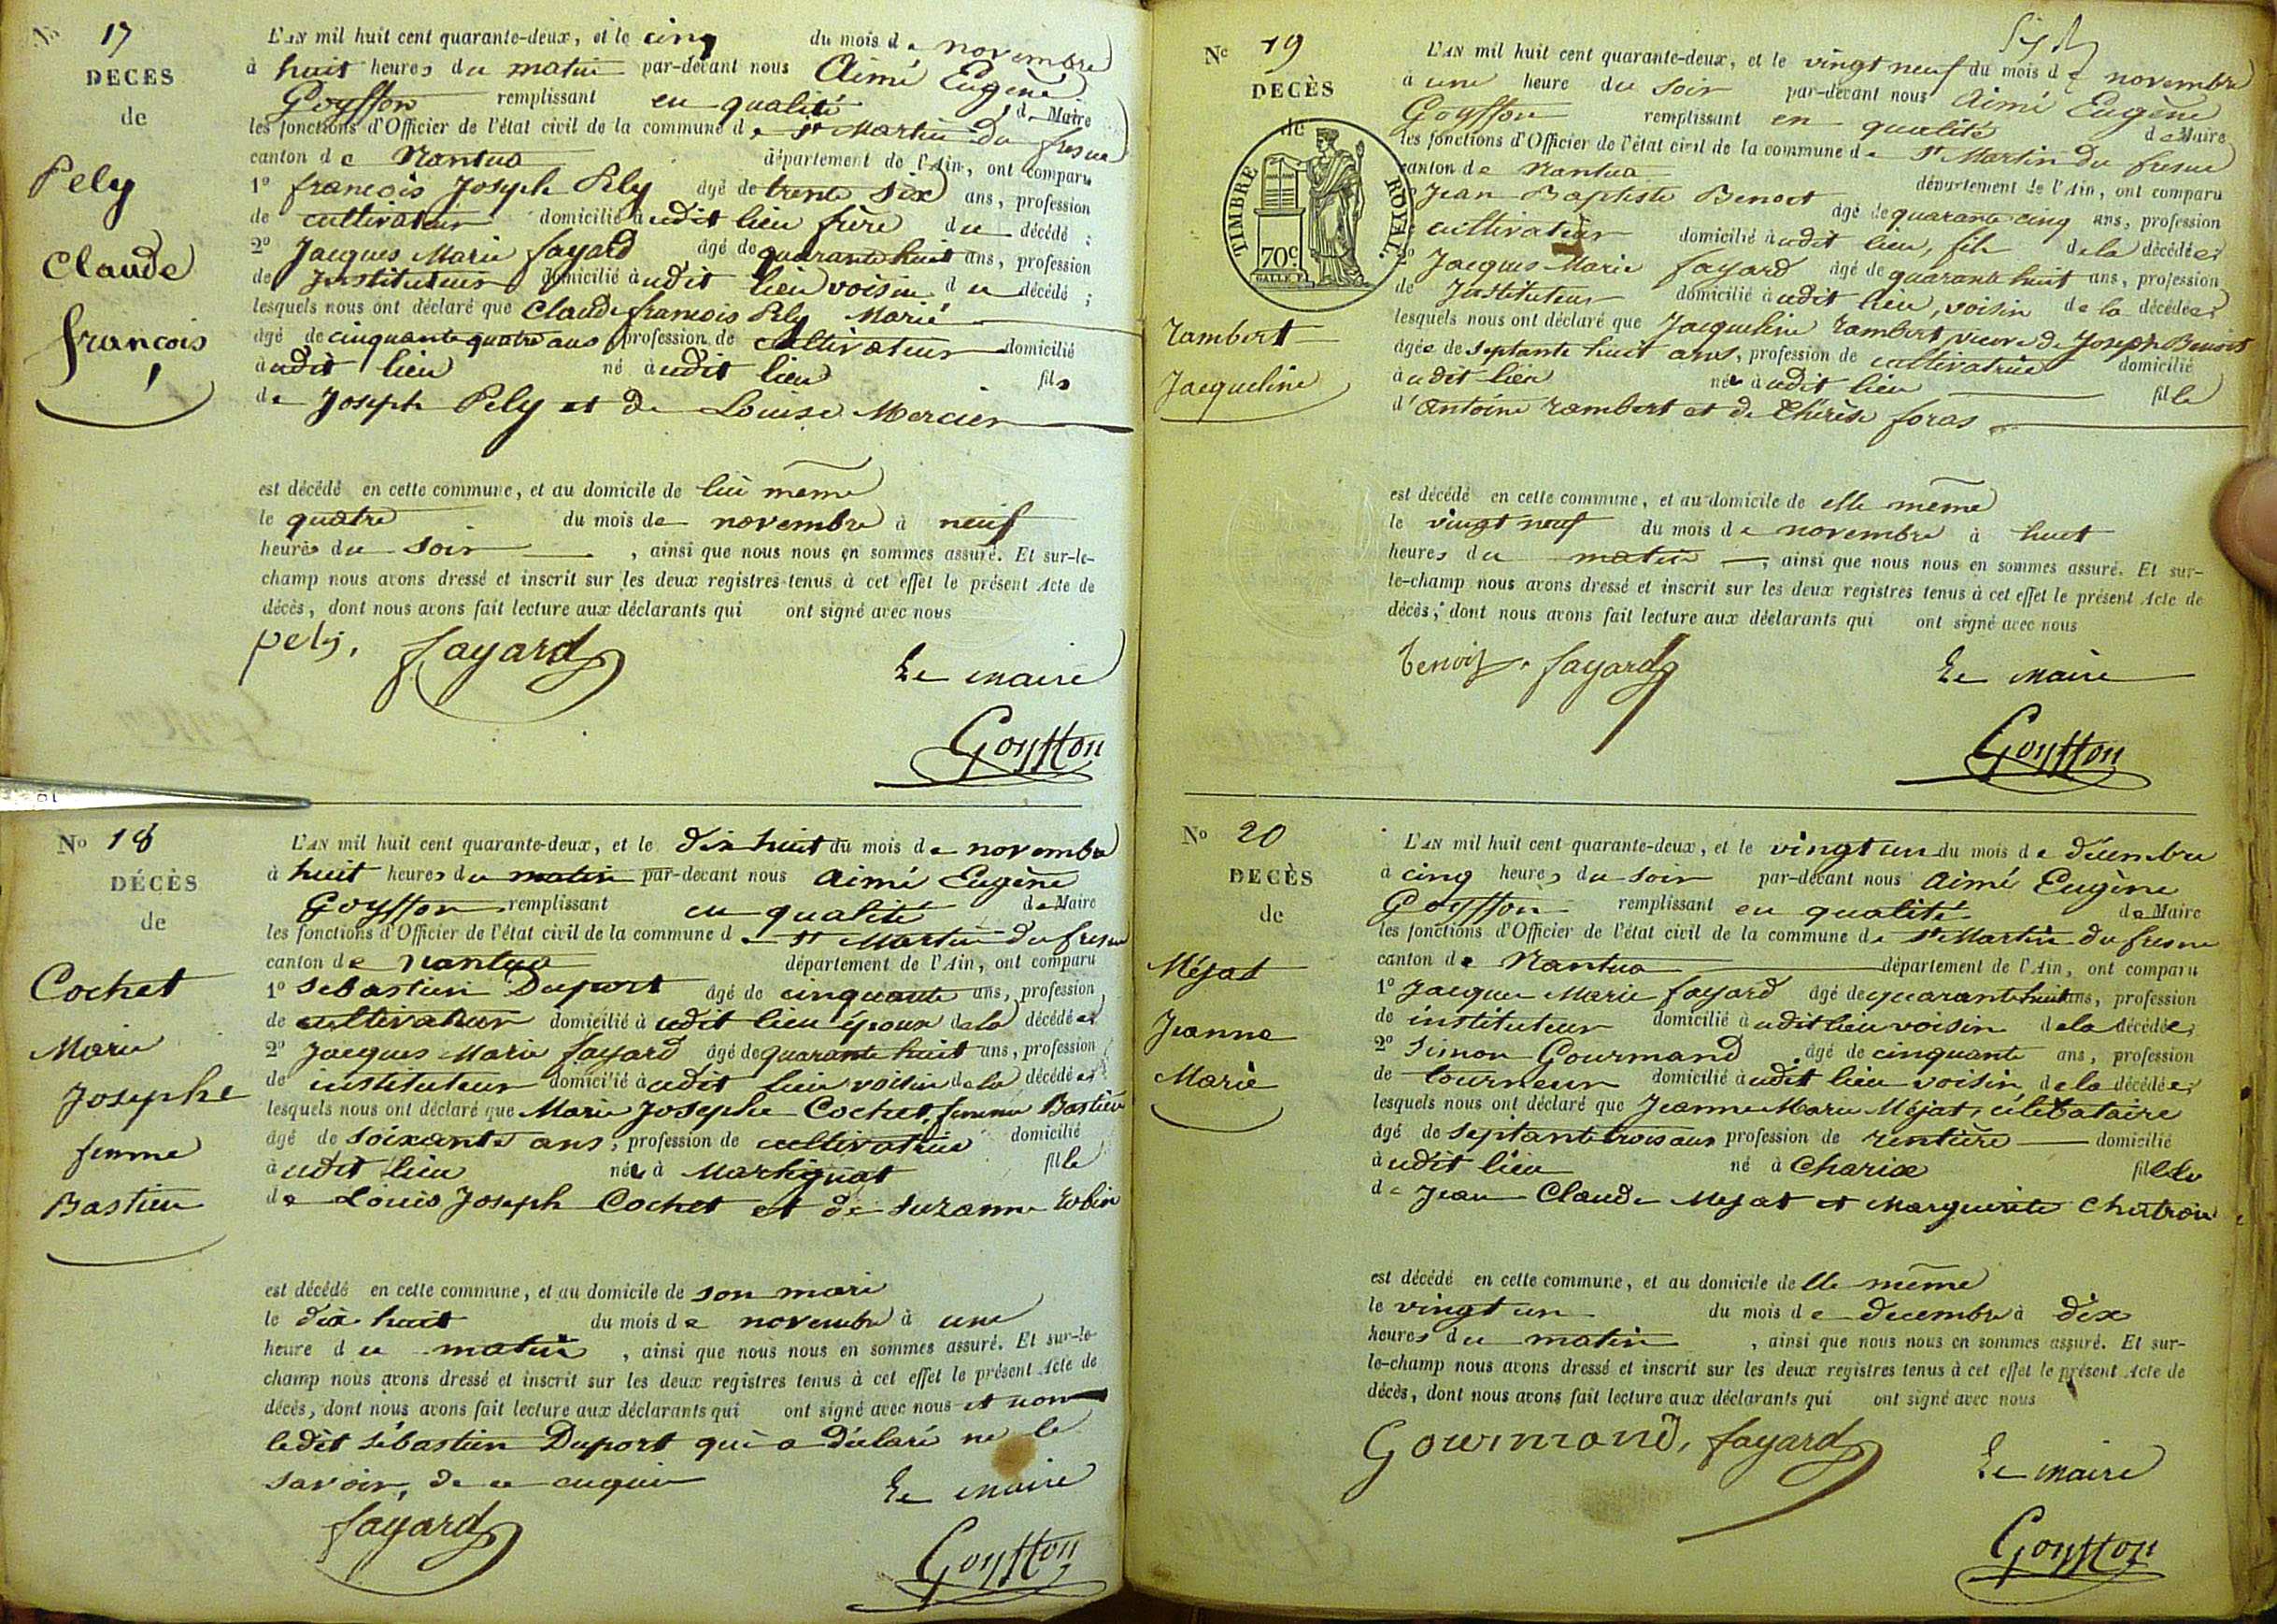 No 17
DECÈS
de
Pely
Claude
françois
L'AN mil huit cent quarante-deux, et le cinq du mois de novembre
à huit heures du matin par-devant nous Aimé Eugène
Goyffon remplissant en qualité de Maire
les fonctions d'Officier de l'état civil de la commune de St Martin du fresne
canton de Nantua département de l'Ain, ont comparu
1° françois Joseph Pely âgé de trente six ans, profession
de cultivateur domicilié audit lieu frère du décédé ;
2° Jacques Marie fayard âgé de quarante huit ans, profession
de Instituteur domicilié audit lieu voisin du décédé ;
lesquels nous ont déclaré que Claude françois Pely Marié
âgé de cinquante quatre ans profession de cultivateur domicilié
audit lieu né audit lieu fils
de Joseph Pely et de Louise Mercier
est décédé en cette commune, et au domicile de lui même
le quatre du mois de novembre à neuf
heures du soir , ainsi que nous nous en sommes assuré. Et sur-le-
champ nous avons dressé et inscrit sur les deux registres tenus à cet effet le présent Acte de
décès, dont nous avons fait lecture aux déclarants qui ont signé avec nous
pely, fayard Le maire
Goyffon
No 18
DÉCÈS
de
Cochet
Marie
Josephe
femme
Bastien
L'AN mil huit cent quarante-deux, et le dix huit du mois de novembre
à huit heures du matin par-devant nous Aimé Eugène
Goyffon remplissant en qualité de Maire
les fonctions d'Officier de l'état civil de la commune de St Martin du fresne
canton de Nantua département de l'Ain, ont comparu
1° Sébastien Duport âgé de cinquante ans, profession
de cultivateur domicilié à udit lieu époux de la décédée ;
2° Jacques Marie fayard âgé de quarante huit ans, profession
de instituteur domicilié audit lieu voisin de la décédée ;
lesquels nous ont déclaré que Marie Josephe Cochet, femme Bastien
âgé de soixante ans, profession de cultivatrice domicilié
à udit lieu née à Martignat fille
de Louis Joseph Cochet et de Suzanne
est décédé en cette commune, et au domicile de son mari
le dix huit du mois de novembre à une
heure du matin , ainsi que nous nous en sommes assuré. Et sur-le-
champ nous avons dressé et inscrit sur les deux registres tenus à cet effet le présent Acte de
décès, dont nous avons fait lecture aux déclarants qui ont signé avec nous et non
ledit Sébastien Duport qui a déclaré ne le
savoir, de ce enquis Le maire
fayard
Goyffon
No 19
DECÈS
de
TIMBRE ROYAL.
70c
GALLE F.
Rambert
Jacqueline
L'AN mil huit cent quarante-deux, et le vingt neuf du mois de novembre
à une heure du soir par-devant nous Aimé Eugène
Goyffon remplissant en qualité de Maire
les fonctions d'Officier de l'état civil de la commune de St Martin du fresne
canton de Nantua département de l'Ain, ont comparu
Jean Baptiste Benoit âgé de quarante cinq ans, profession
cultivateur domicilié audit lieu, fils de la décédée ;
2° Jacques Marie fayard âgé de quarante huit ans, profession
de Instituteur domicilié à udit lieu, voisin de la décédée ;
lesquels nous ont déclaré que Jacqueline Rambert, veuve de Joseph Benoit
âgée de septante huit ans, profession de cultivatrice domicilié
audit lieu née audit lieu fille
d'Antoine Rambert et de Thérèse foras
est décédé en cette commune, et au domicile de elle même
le vingt neuf du mois de novembre à huit
heures du matin , ainsi que nous nous en sommes assuré. Et sur-
le-champ nous avons dressé et inscrit sur les deux registres tenus à cet effet le présent Acte de
décès, dont nous avons fait lecture aux déclarants qui ont signé avec nous
benoit. fayard Le maire
Goyffon
No 20
DECÈS
de
Méjat
Jeanne
Marie
L'AN mil huit cent quarante-deux, et le vingt un du mois de décembre
à cinq heures du soir par-devant nous Aimé Eugène
Goyffon remplissant en qualité de Maire
les fonctions d'Officier de l'état civil de la commune de St Martin du fresne
canton de Nantua département de l'Ain, ont comparu
1° Jacques Marie fayard âgé de quarante huit ans, profession
de instituteur domicilié à udit lieu voisin de la décédée ;
2° Simon Gourmand âgé de cinquante ans, profession
de tourneur domicilié à udit lieu voisin, de la décédée ;
lesquels nous ont déclaré que Jeanne Marie Méjat, célibataire
âgé de septante trois ans profession de rentière domicilié
à udit lieu né à Charix fille
de Jean Claude Mejat et Marguerite
est décédé en cette commune, et au domicile de lle même
le vingt un du mois de decembre à dix
heures du matin , ainsi que nous nous en sommes assuré. Et sur-
le-champ nous avons dressé et inscrit sur les deux registres tenus à cet effet le présent Acte de
décès, dont nous avons fait lecture aux déclarants qui ont signé avec nous
Gourmand, fayard Le maire
Goyffon